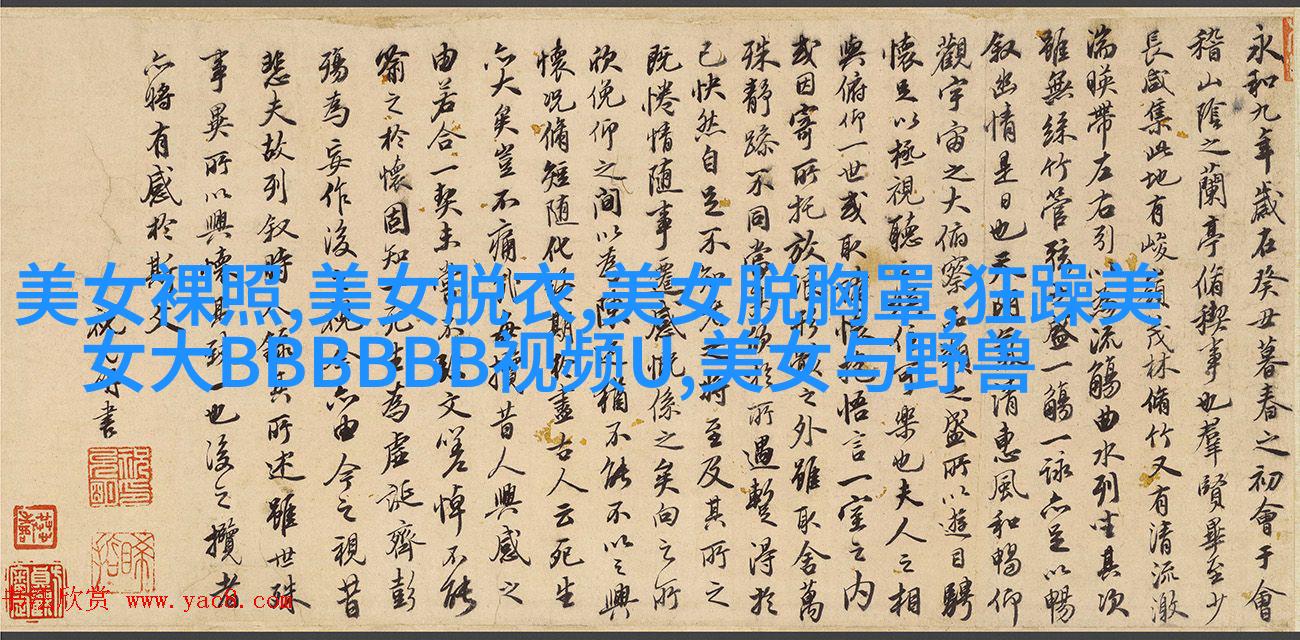 永和九年歲在癸丑暮春之初會于會
稽山陰之蘭亭脩稧事也羣賢畢至少
長咸集此地有峻領茂林脩竹又有清流激
湍暎帶左右引以為流觴曲水列坐其次
雖無絲竹管弦盛一觴一詠亦足以暢
叙幽情是日也天朗清惠風和暢仰
觀宇宙之大俯察品類之盛所以遊目騁
懷足以極視聽信可樂也夫人之相
與俯仰一世或取懷抱悟言一室之內
或因寄所托放浪形骸之外雖取舍萬
殊靜躁不同當其於所遇蹔得於
己快然自足不知老之將至及其所之
既惓情随事遷感慨係之矣向之所
欣俛仰之間以為陳猶不能不以之興
懷況脩短随化終期於盡古人云死生
亦大矣豈不痛哉每攬昔人興感之
由若合一契未嘗不臨文嗟悼不能
喻之於懷固知一死生為虛誕齊彭
殤為妄作後之視今亦由今之視昔
悲夫故列叙時人錄其所述雖世殊
事異所以興懷其致一也後之攬者
亦將有感於斯文
祝允明書
美女裸照,美女脱衣,美女脱胸罩,狂躁美
女大BBBBBB视频U,美女与野兽
欣赏 www.yac8.com